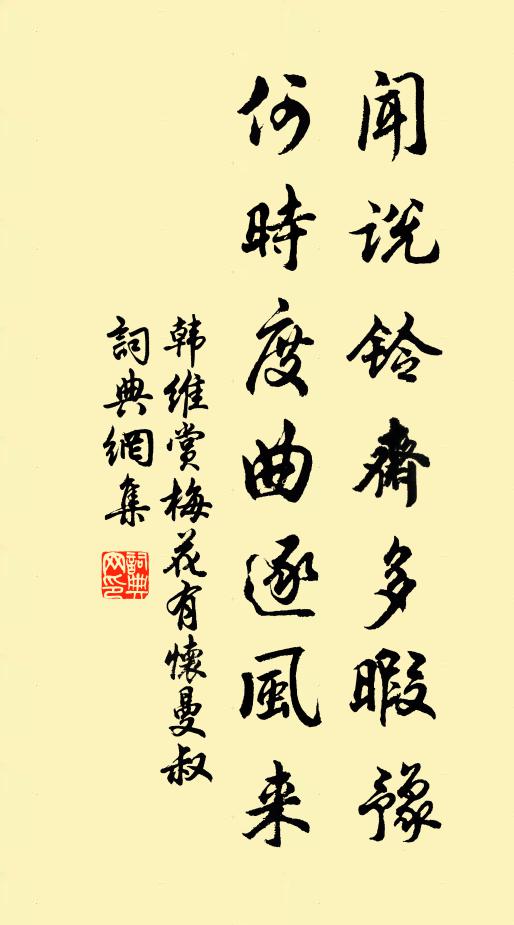 闻说铃齋多暇豫
何時度曲逐風来
韩维赏梅花有懷曼叔
詞典網集
詞典网印